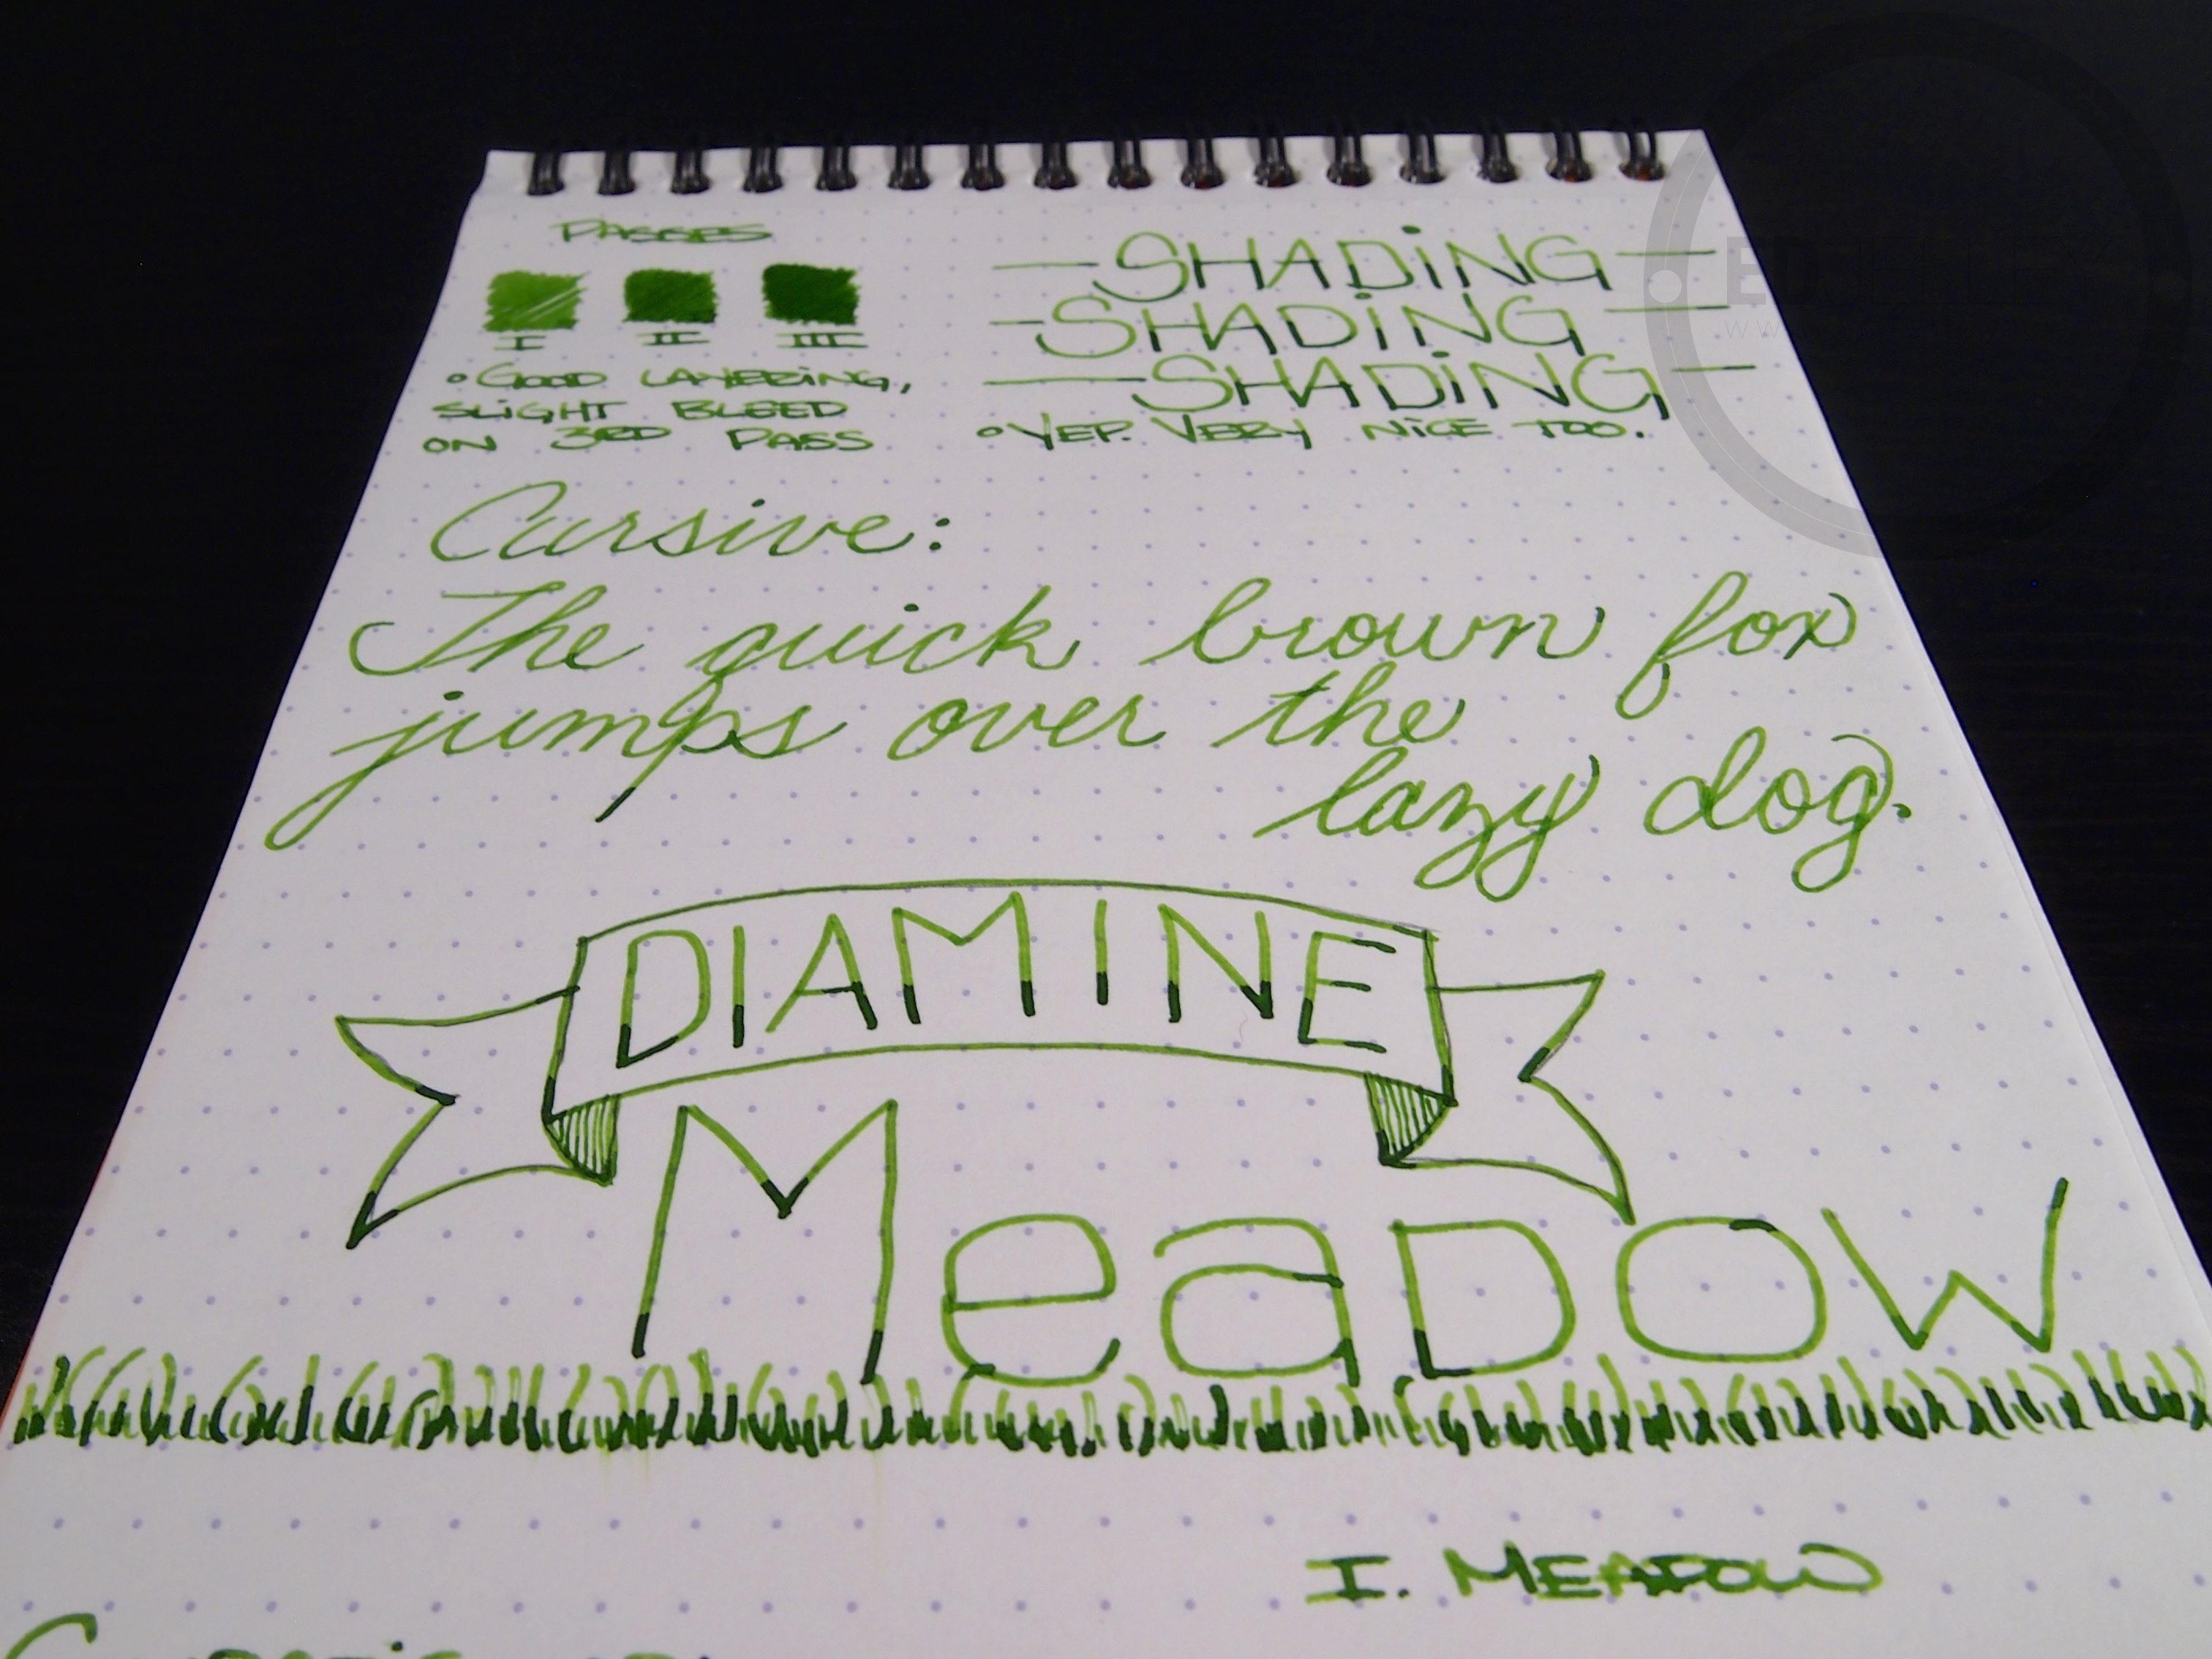 PASSES
I II III
• GOOD LAYERING,
SLIGHT BLEED
ON 3RD PASS
SHADING
SHADING
SHADING
• YEP. VERY NICE TOO.
Cursive:
The quick brown fox
jumps over the
lazy dog.
DIAMINE
MeaDow
I. MEADOW